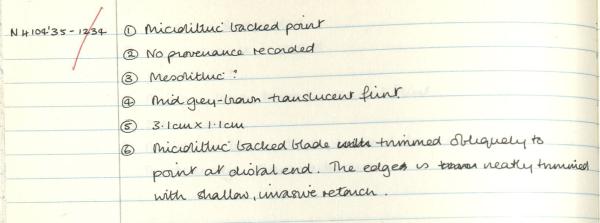 NH104'35-1234 ① Microlithic backed point
② No provenance recorded
③ Mesolithic?
④ Mid grey-brown translucent flint.
⑤ 3.1cm x 1.1cm
⑥ Microlithic backed blade trimmed obliquely to
point at distal end. The edge is neatly trimmed
with shallow, invasive retouch.